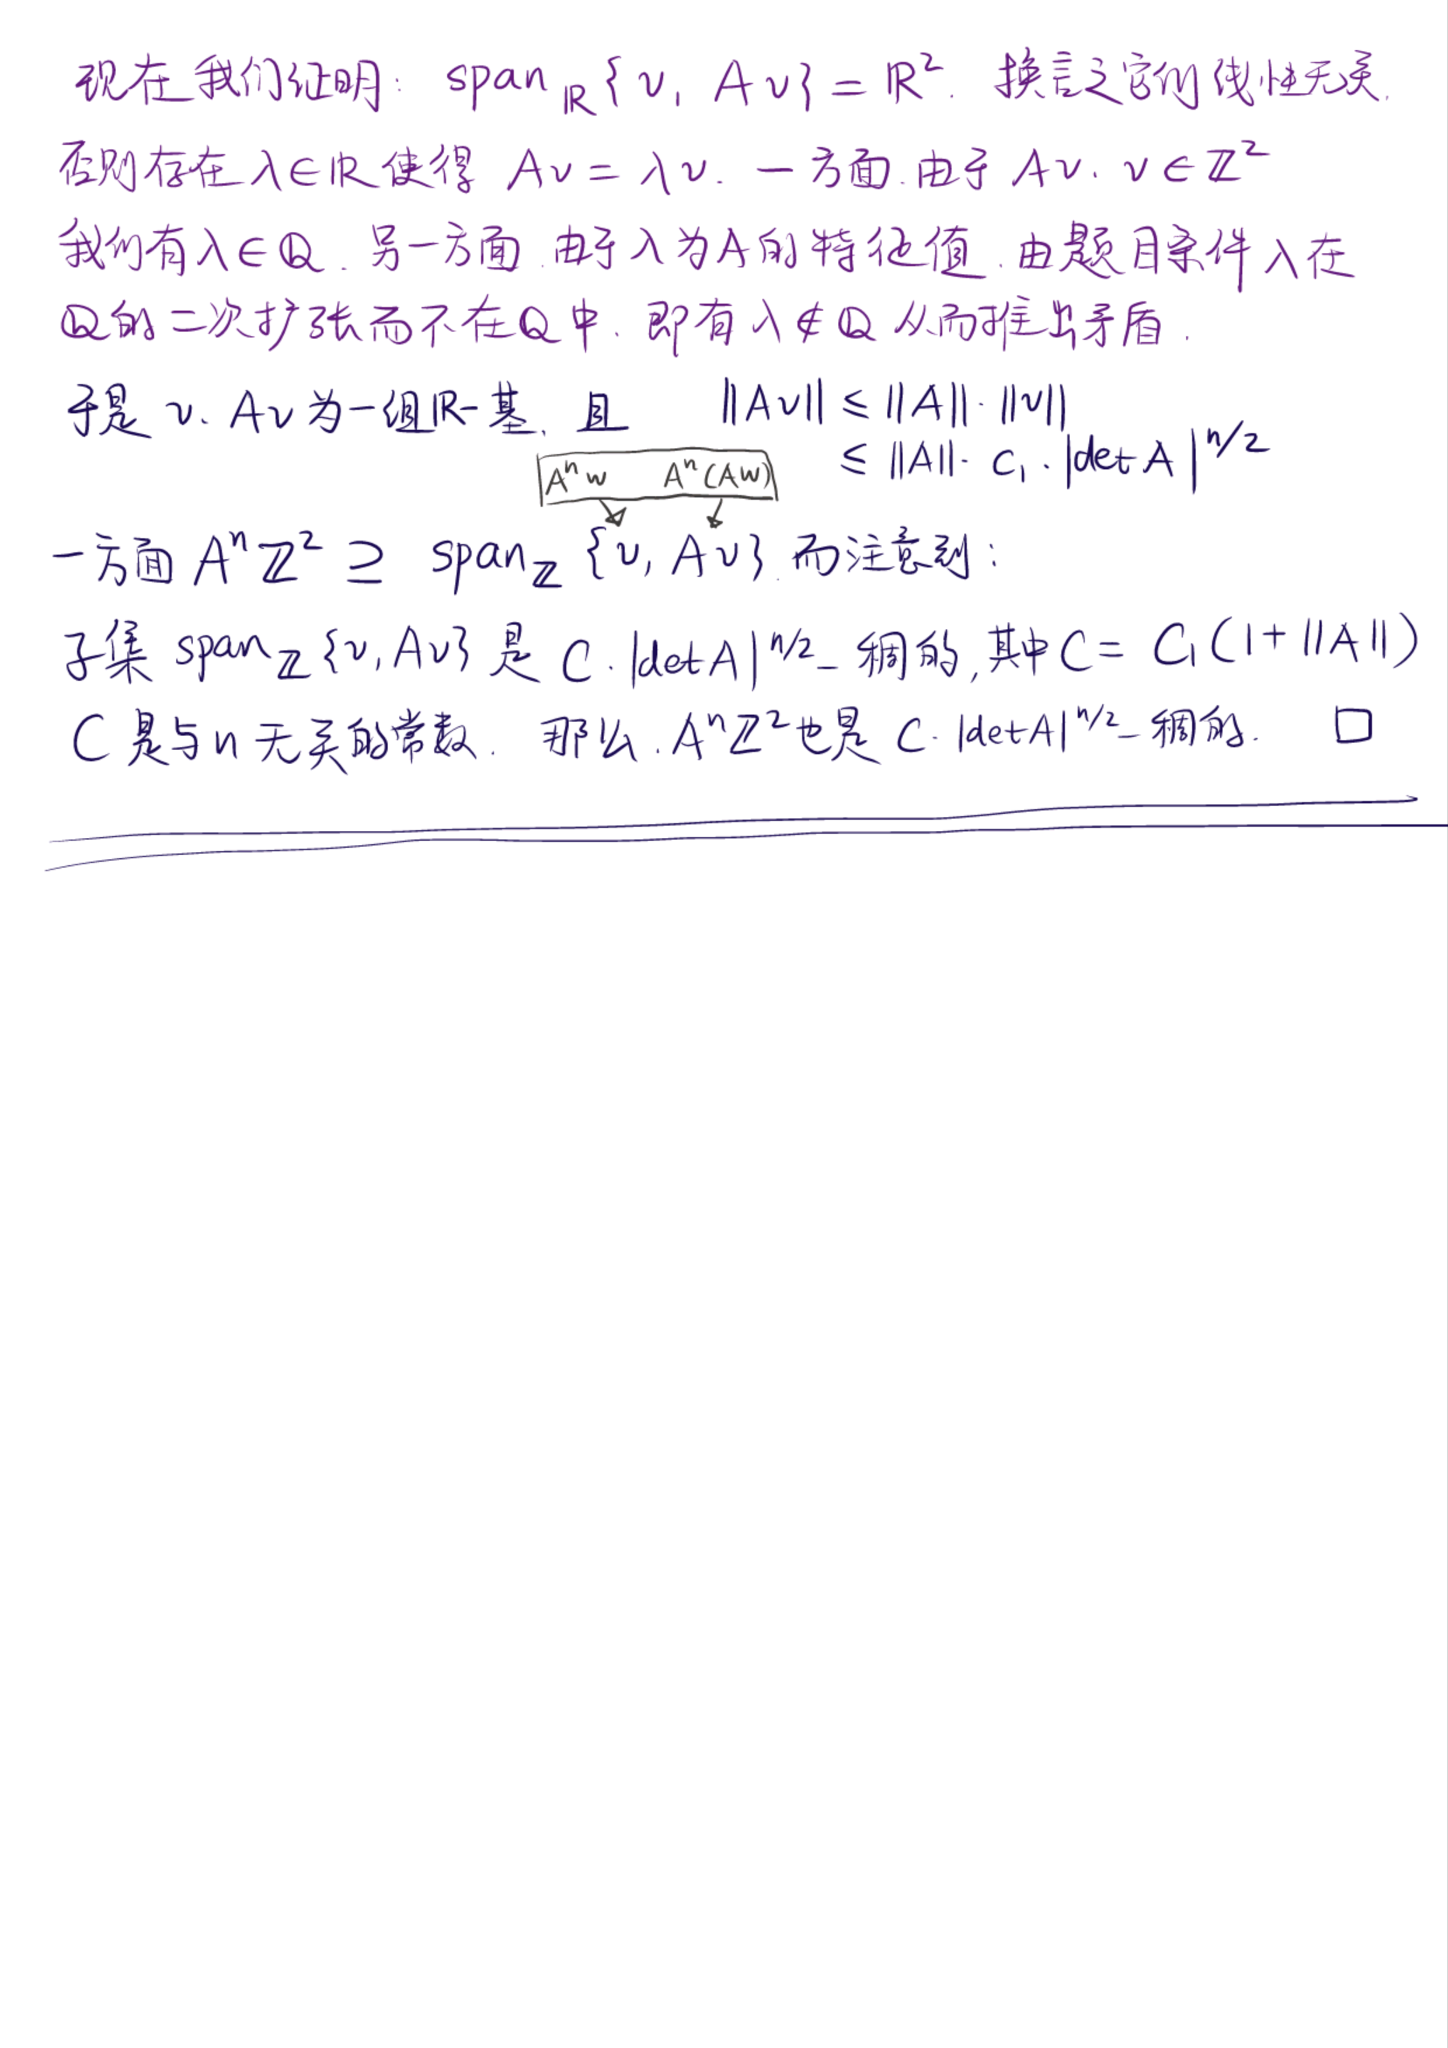 现在我们证明: span_ℝ{v, Av} = ℝ². 换言之它们线性无关.
否则存在 λ∈ℝ 使得 Av = λv. 一方面.由于 Av. v∈ℤ²
我们有 λ∈ℚ. 另一方面.由于λ为A的特征值.由题目条件λ在
ℚ的二次扩张而不在ℚ中. 即有 λ∉ℚ 从而推出矛盾.
于是 v. Av 为一组ℝ-基. 且 ||Av|| ≤ ||A||·||v||
≤ ||A||· C₁ · |det A|^{n/2}
Aⁿw Aⁿ(Aw)
一方面 Aⁿℤ² ⊇ span_ℤ {v, Av}. 而注意到:
子集 span_ℤ{v, Av} 是 C·|det A|^{n/2}-稠的, 其中 C = C₁(1+||A||)
C 是与n无关的常数. 那么. Aⁿℤ²也是 C·|det A|^{n/2}-稠的. □